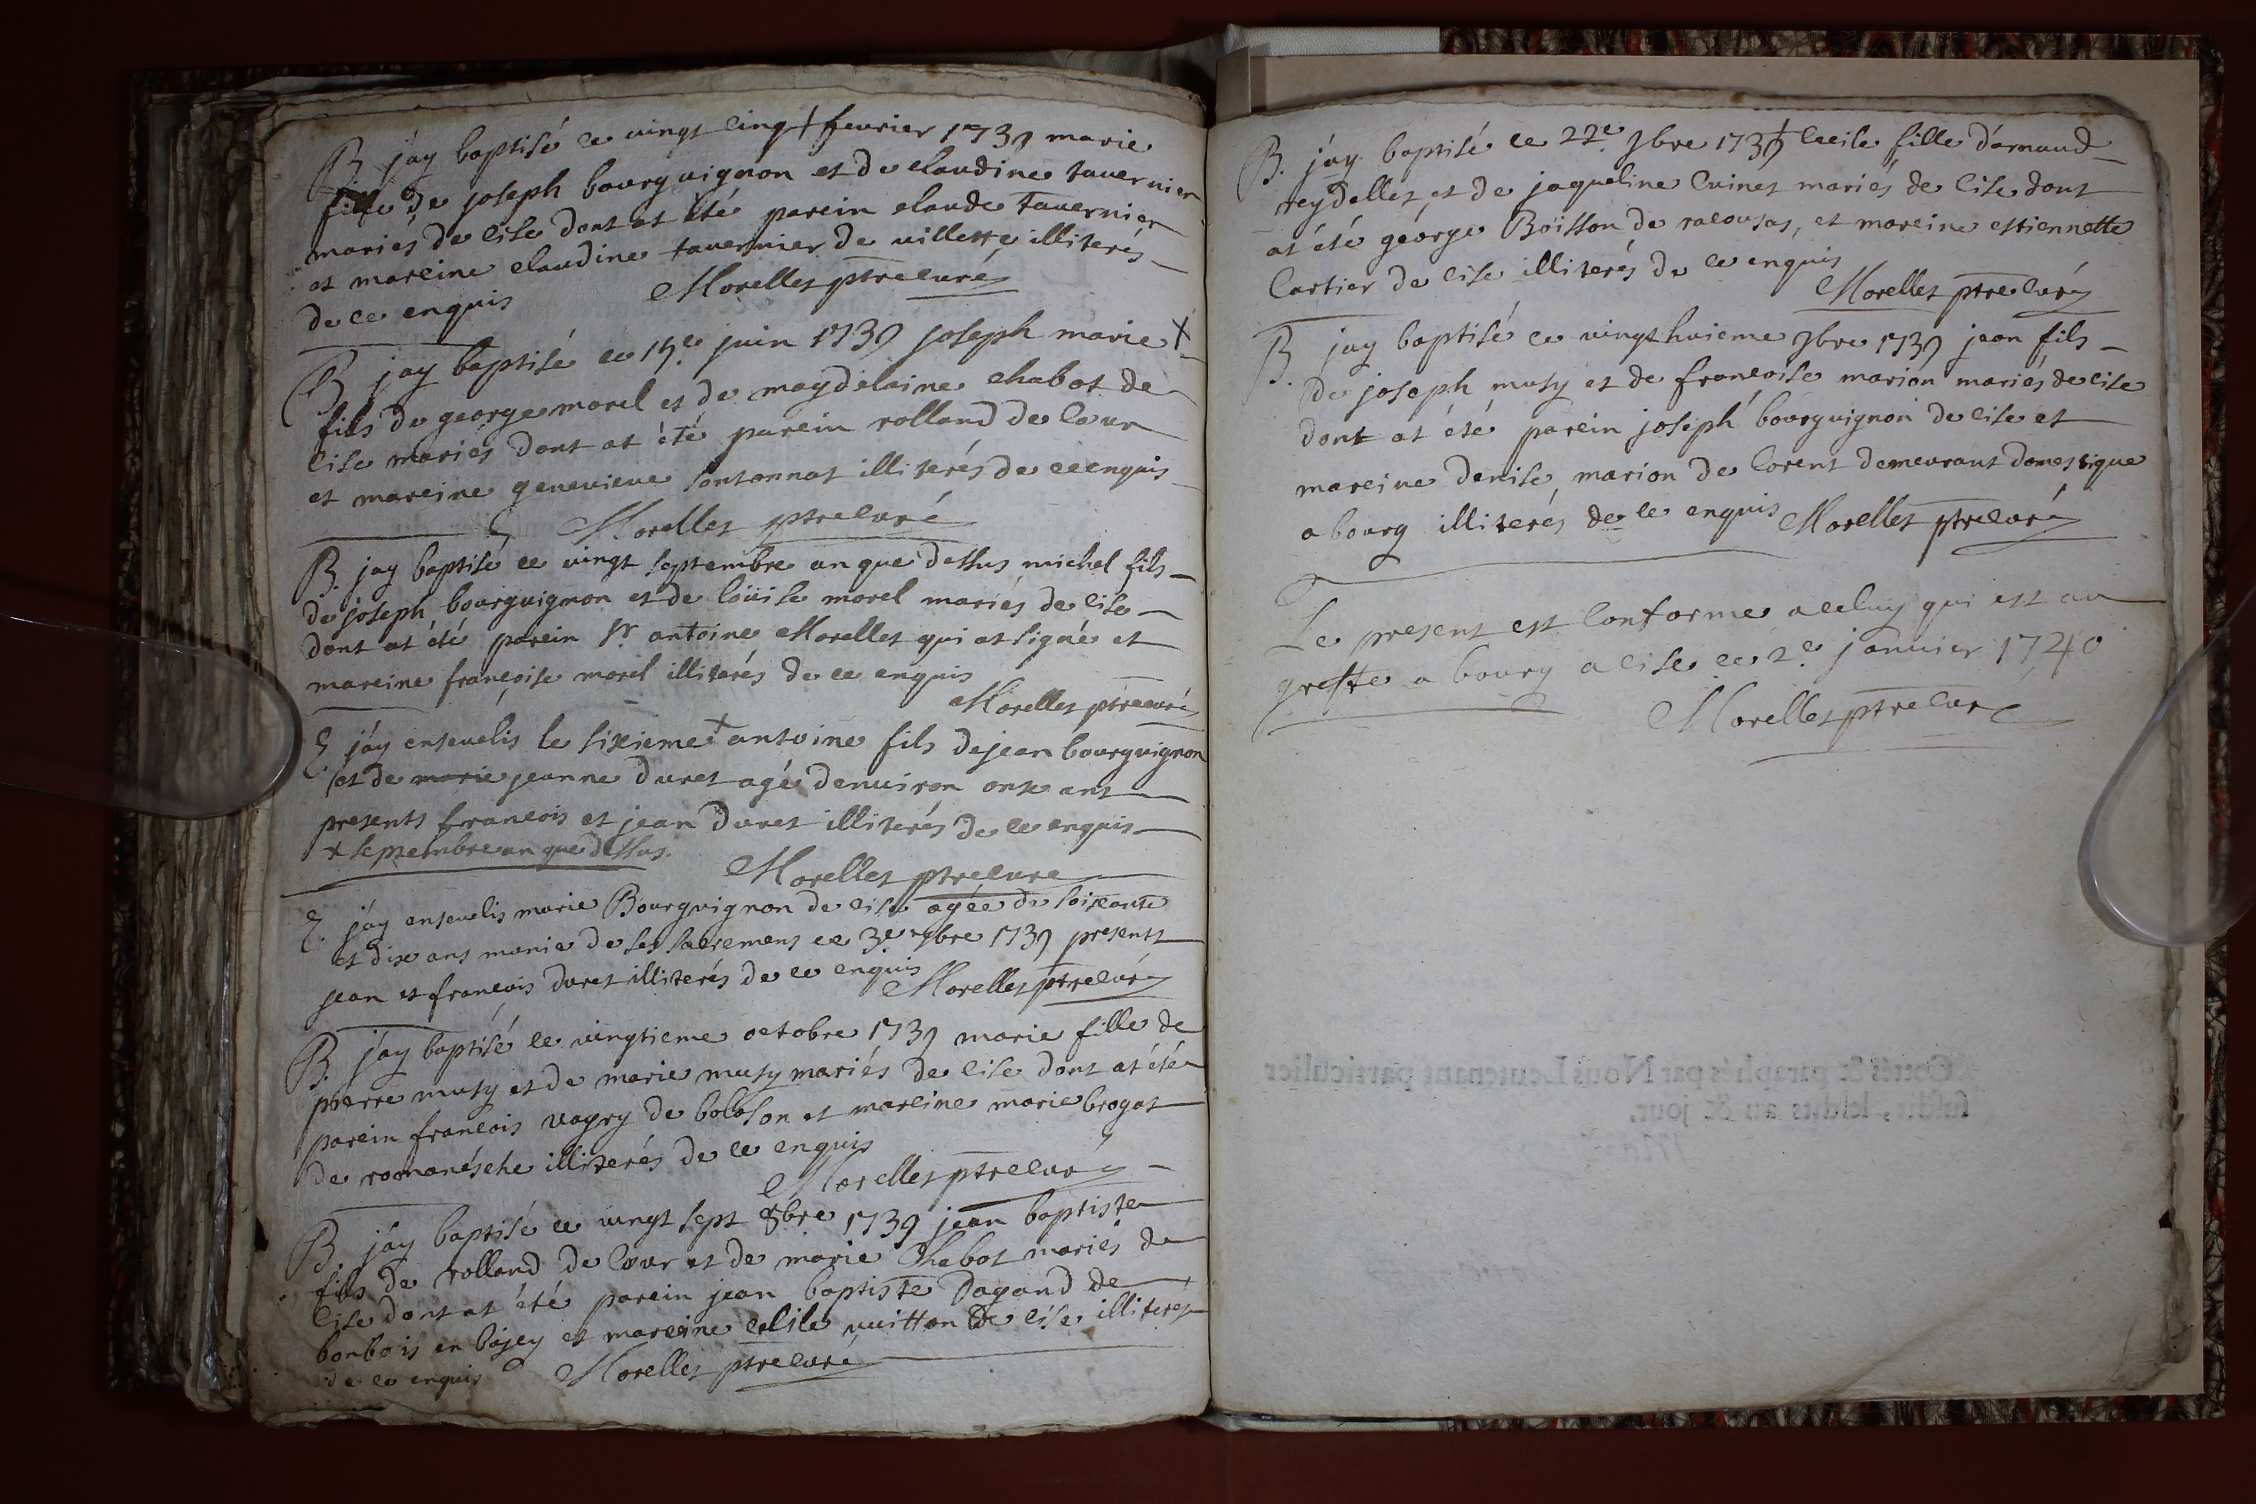 B jay baptisé ce vingt cinq + feurier 1739 marie
fille de joseph bourguignon et de claudine tauernier
mariés de cise dont at été parein claude tauernier
et mareine claudine tauernier de uillette illiterés
de ce enquis Morellet ptre curé
B jay baptisé ce 15e juin 1739 joseph marie +
fils de george morel et de magdelaine chabot de
cise mariés dont at été parein rolland de cour
et mareine geneuieue fontannat illiterés de ce enquis
Morellet ptre curé
B. jay baptisé ce uingt septembre an que dessus michel fils
de joseph bourguignon et de loüise morel mariés de cise
dont at été parein Sr antoine Morellet qui at signé et
mareine françoise morel illiterés de ce enquis
Morellet ptre curé
E. jáy enseuelis le sixieme + antoine fils de jean bourguignon
et de marie jeanne duret agé denuiron onze ans
presents francois et jean duret illiterés de ce enquis
+ septembre an que dessus.
Morellet ptre cure
E. jáy enseuelis marie Bourguignon de cise agée de soixante
et dix ans munie de ses sacremens ce 3e 7bre 1739 presents
jean et francois duret illiterés de ce enquis
Morellet ptre curé
B. jáy baptisé ce uingtieme octobre 1739 marie fille de
pierre musy et de marie musy mariés de cise dont at été
parein francois uagry de boloson et mareine marie brogat
de romanéche illiterés de ce enquis
Morellet ptre curé
B. jáy baptisé ce uingt sept 8bre 1739 jean baptiste
fils de rolland de cour et de marie Chabot mariés de
cise dont at été parein jean baptiste Dagand de
bonbois en bajey et mareine cecile uuitton de cise illiterés
de ce enquis Morellet ptre curé
B. jáy baptisé ce 22e 9bre 1739 + cecile fille d'arnaud
reydellet et de jaqueline Cuinet mariés de cise dont
at été géorge Boisson de racousas, et mareine estiennette
Cartier de cise illiterés de ce enquis
Morellet ptre curé
B. jay baptisé ce uingt huieme 9bre 1739 jean fils
de joseph musy et de francoise marion mariés de cise
dont at été parein joseph bourguignon de cise et
mareine denise marion de Corent demeurant domestique
a bourg illiterés de ce enquis Morellet ptre curé
Le present est Conforme a celuy qui est au
greffe a bourg a cise ce 2e januier 1740
Morellet ptre curé
Cottés & paraphés par Nous Lieutenant particulier
susdit, lesdits an & jour.